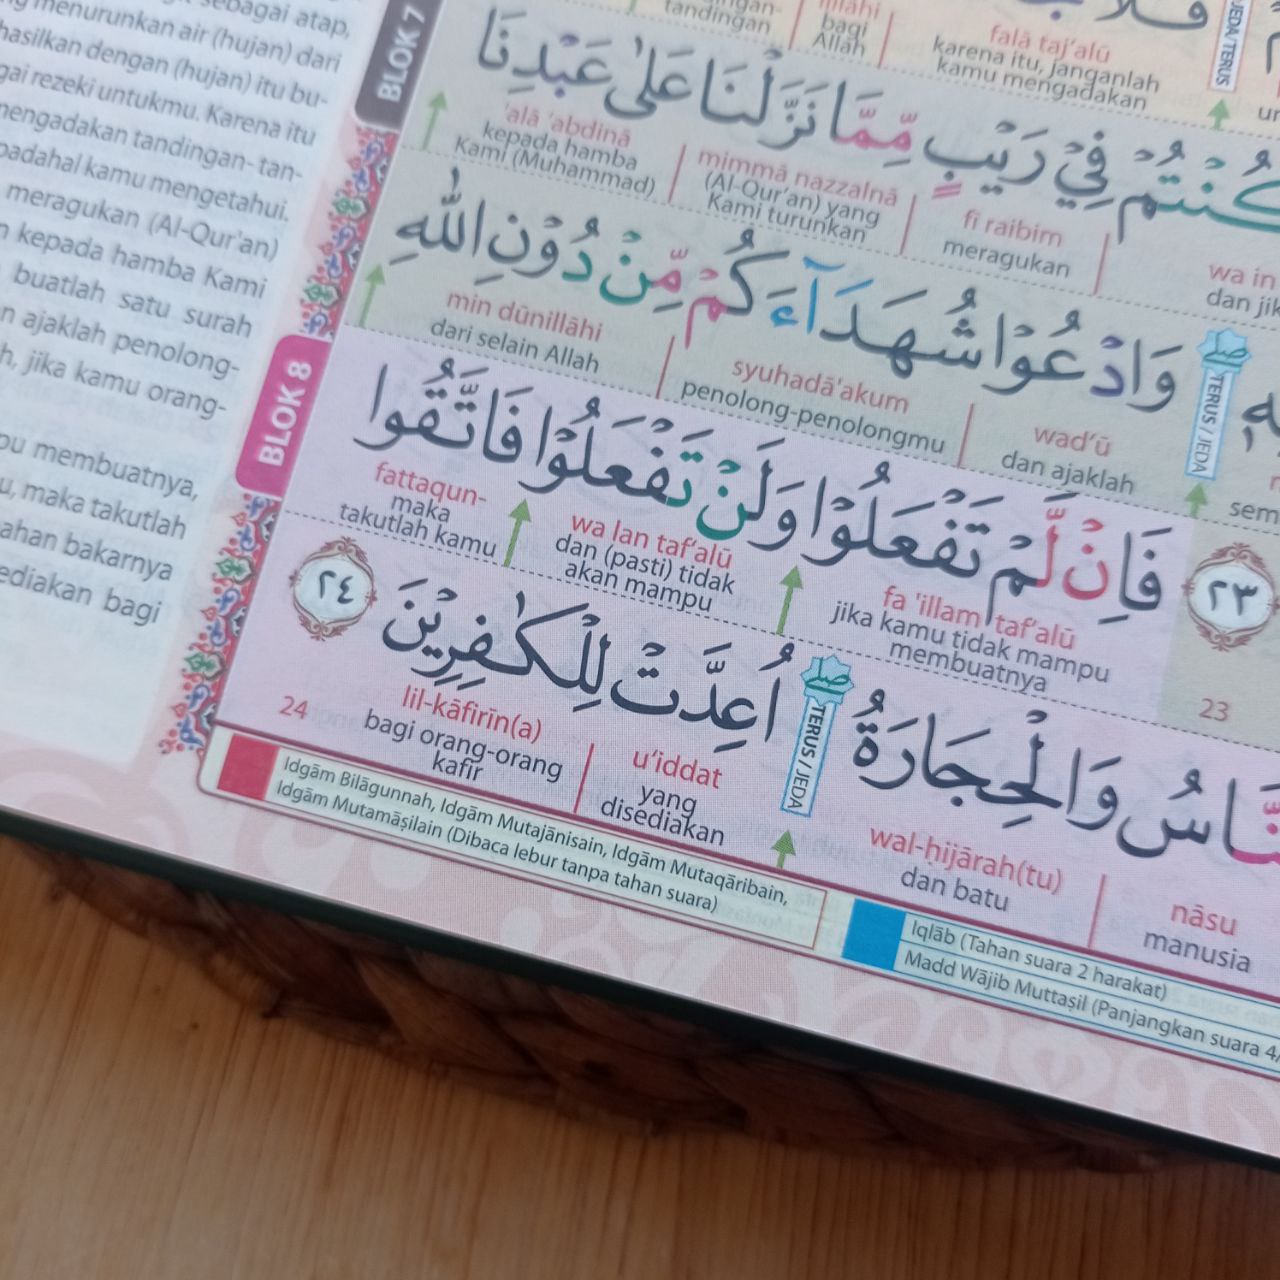 sebagai atap,
menurunkan air (hujan) dari
hasilkan dengan (hujan) itu bu-
gai rezeki untukmu. Karena itu
mengadakan tandingan- tan-
padahal kamu mengetahui.
meragukan (Al-Qur'an)
kepada hamba Kami
buatlah satu surah
ajaklah penolong-
jika kamu orang-
membuatnya,
maka takutlah
bahan bakarnya
disediakan bagi
BLOK 7
tandingan
bagi
Allah
falā taj'alū
karena itu, janganlah
kamu mengadakan
JEDA/TERUS
كُنْتُمْ فِيْ رَيْبٍ مِّمَّا نَزَّلْنَا عَلٰى عَبْدِنَا
'alā 'abdinā
kepada hamba
Kami (Muhammad)
mimmā nazzalnā
(Al-Qur'an) yang
Kami turunkan
fī raibim
meragukan
wa in
dan jik
وَادْعُوْا شُهَدَاۤءَكُمْ مِّنْ دُوْنِ اللّٰهِ
صلى
TERUS / JEDA
min dūnillāhi
dari selain Allah
syuhadā'akum
penolong-penolongmu
wad'ū
dan ajaklah
BLOK 8
٢٣ فَاِنْ لَّمْ تَفْعَلُوْا وَلَنْ تَفْعَلُوْا فَاتَّقُوا
fattaqun-
maka
takutlah kamu
wa lan taf'alū
dan (pasti) tidak
akan mampu
fa 'illam taf'alū
jika kamu tidak mampu
membuatnya
23
النَّاسُ وَالْحِجَارَةُ صلى اُعِدَّتْ لِلْكٰفِرِيْنَ ٢٤
TERUS / JEDA
24
lil-kāfirīn(a)
bagi orang-orang
kafir
u'iddat
yang
disediakan
wal-ḥijārah(tu)
dan batu
nāsu
manusia
Idgām Bilāgunnah, Idgām Mutajānisain, Idgām Mutaqāribain,
Idgām Mutamāṡilain (Dibaca lebur tanpa tahan suara)
Iqlāb (Tahan suara 2 harakat)
Madd Wājib Muttaṣil (Panjangkan suara 4/